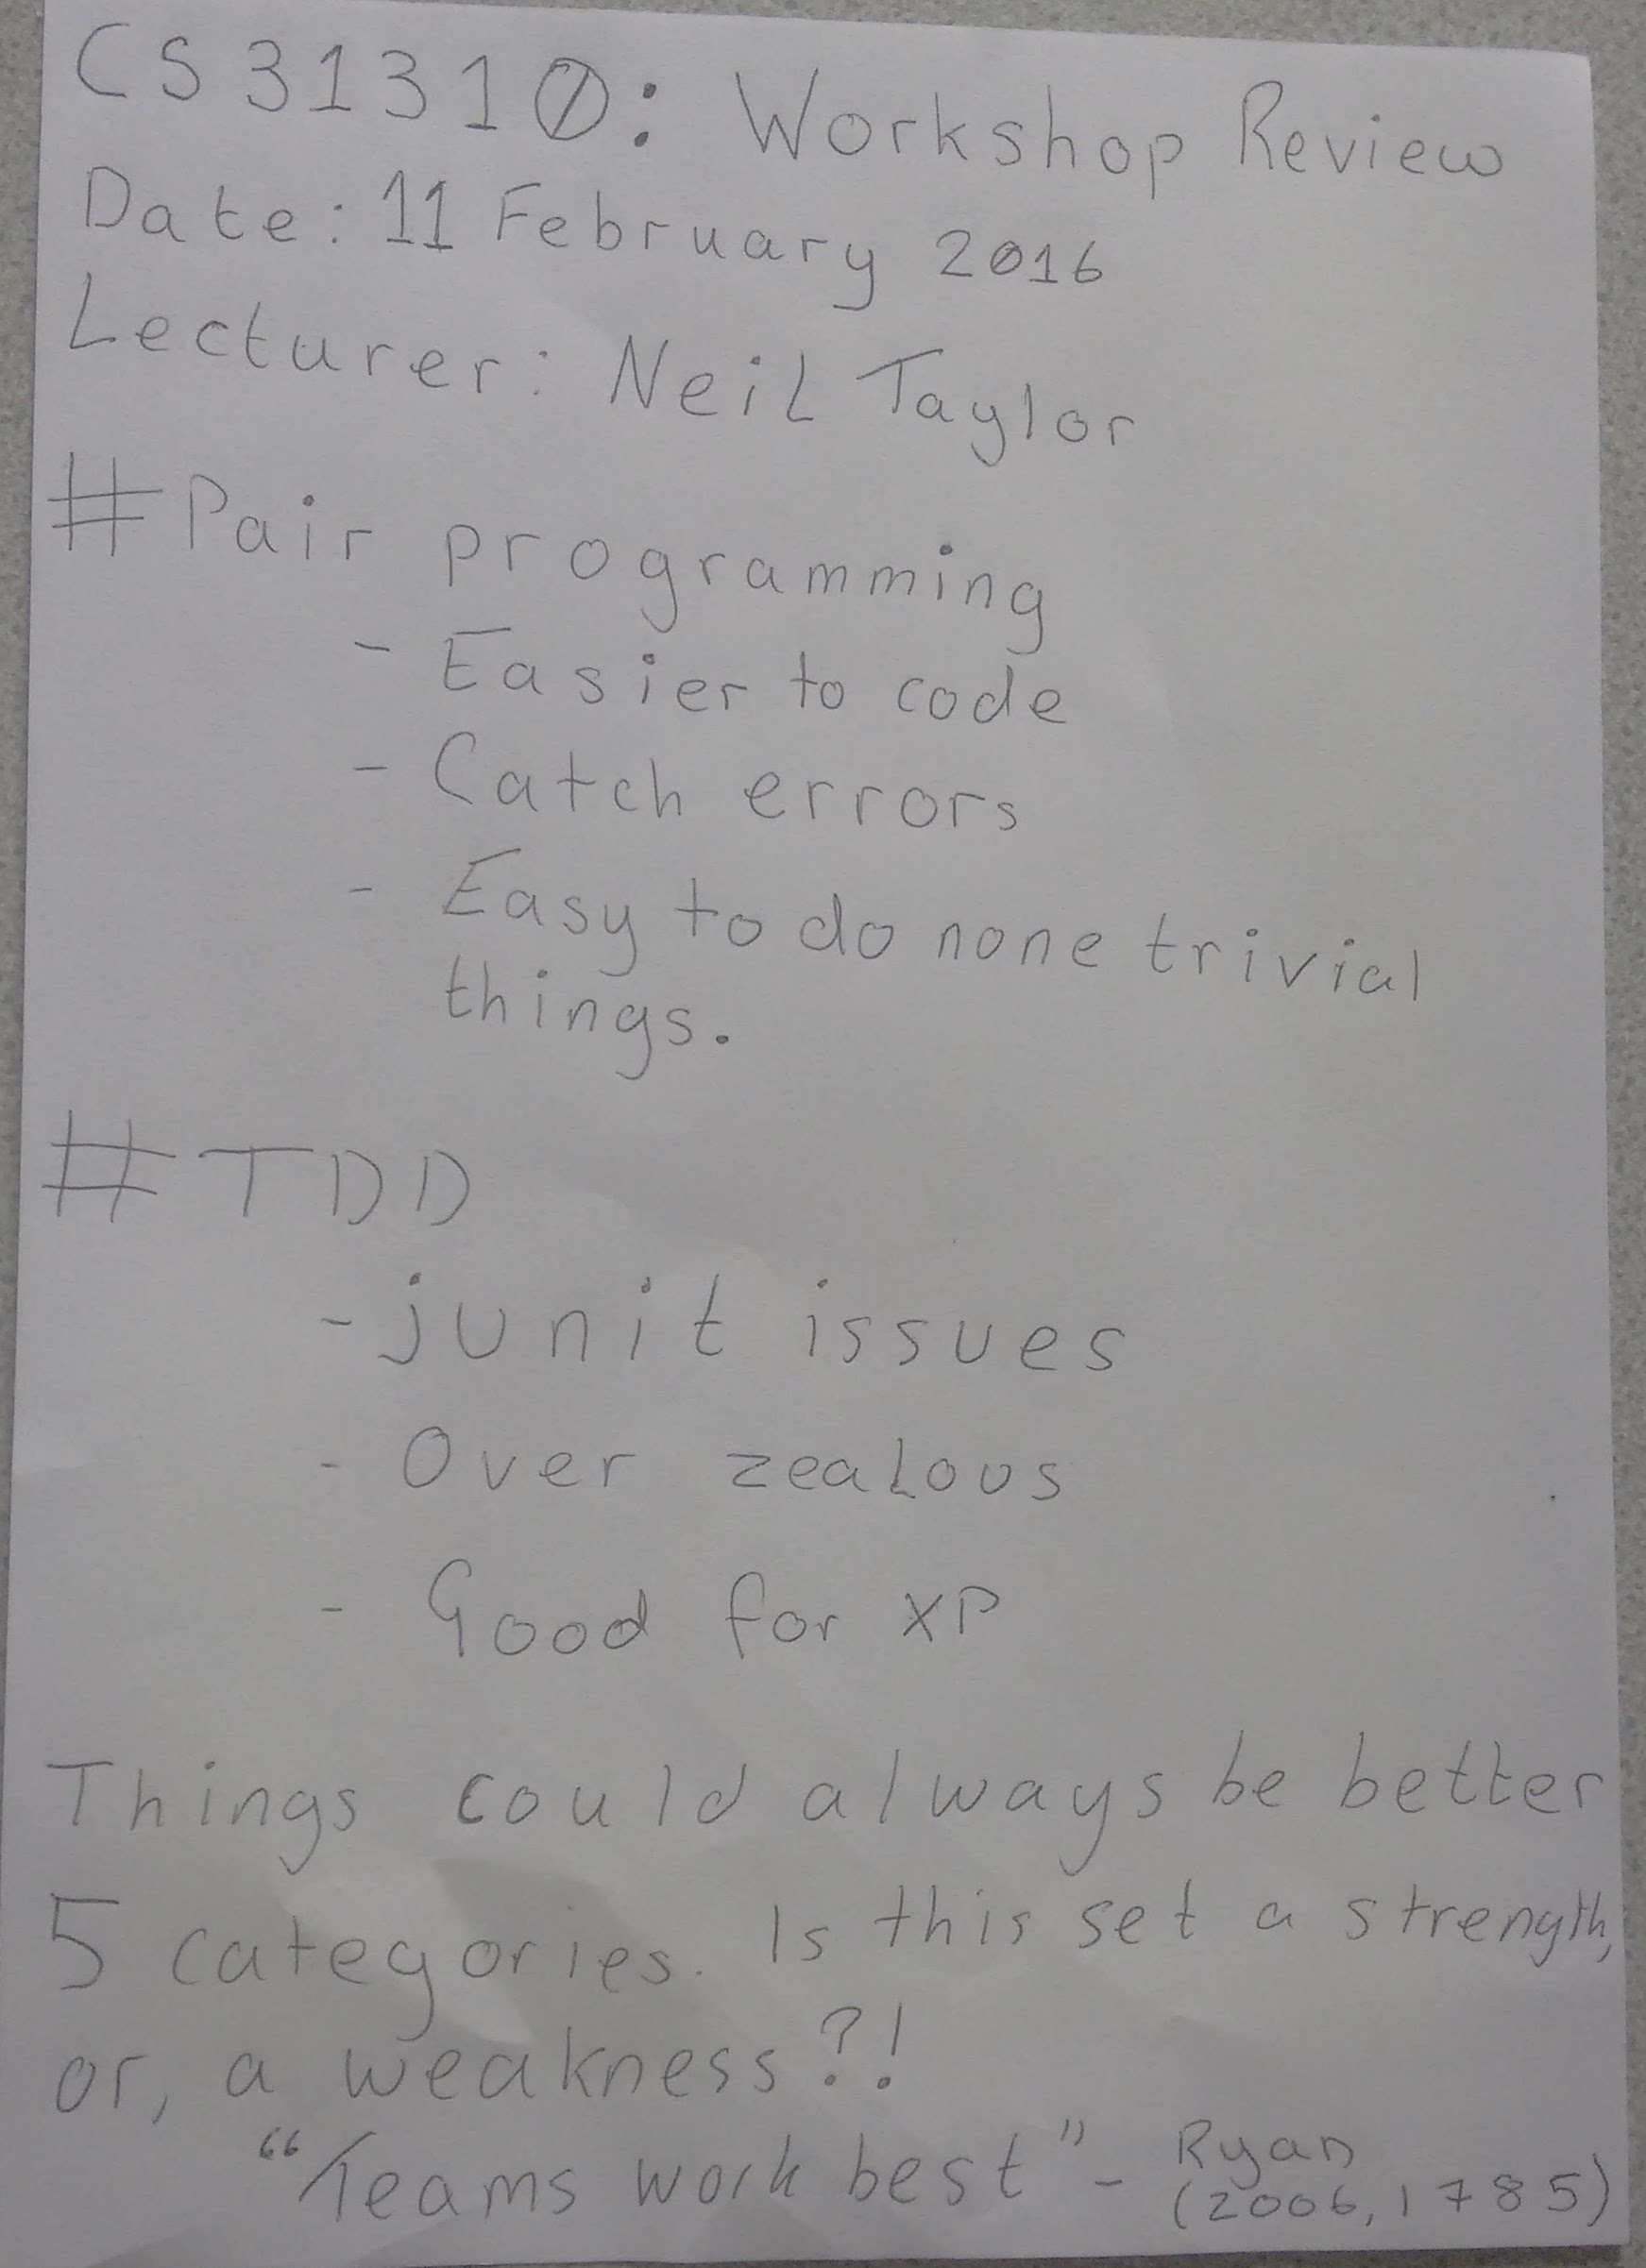 CS31310: Workshop Review
Date: 11 February 2016
Lecturer: Neil Taylor
# Pair programming
- Easier to code
- Catch errors
- Easy to do none trivial
things.
# TDD
- junit issues
- Over zealous
- Good for XP
Things could always be better
5 categories. Is this set a strength,
or, a weakness?!
"Teams work best" - Ryan
(2006, 1785)